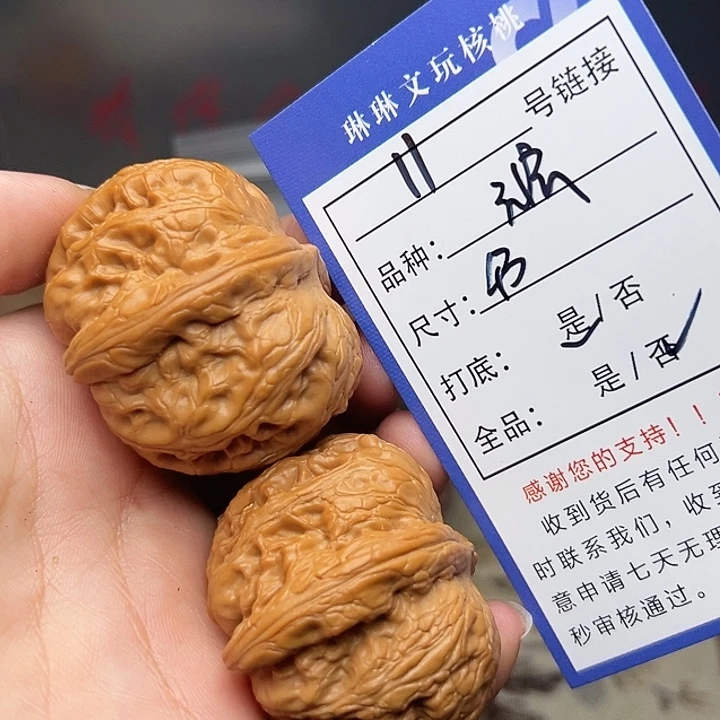 琳琳文玩核桃
11 号链接
品种：
尺寸：
打底： 是/否
全品： 是/否
感谢您的支持！！
收到货后有任何
时联系我们，收到
意申请七天无理
秒审核通过。